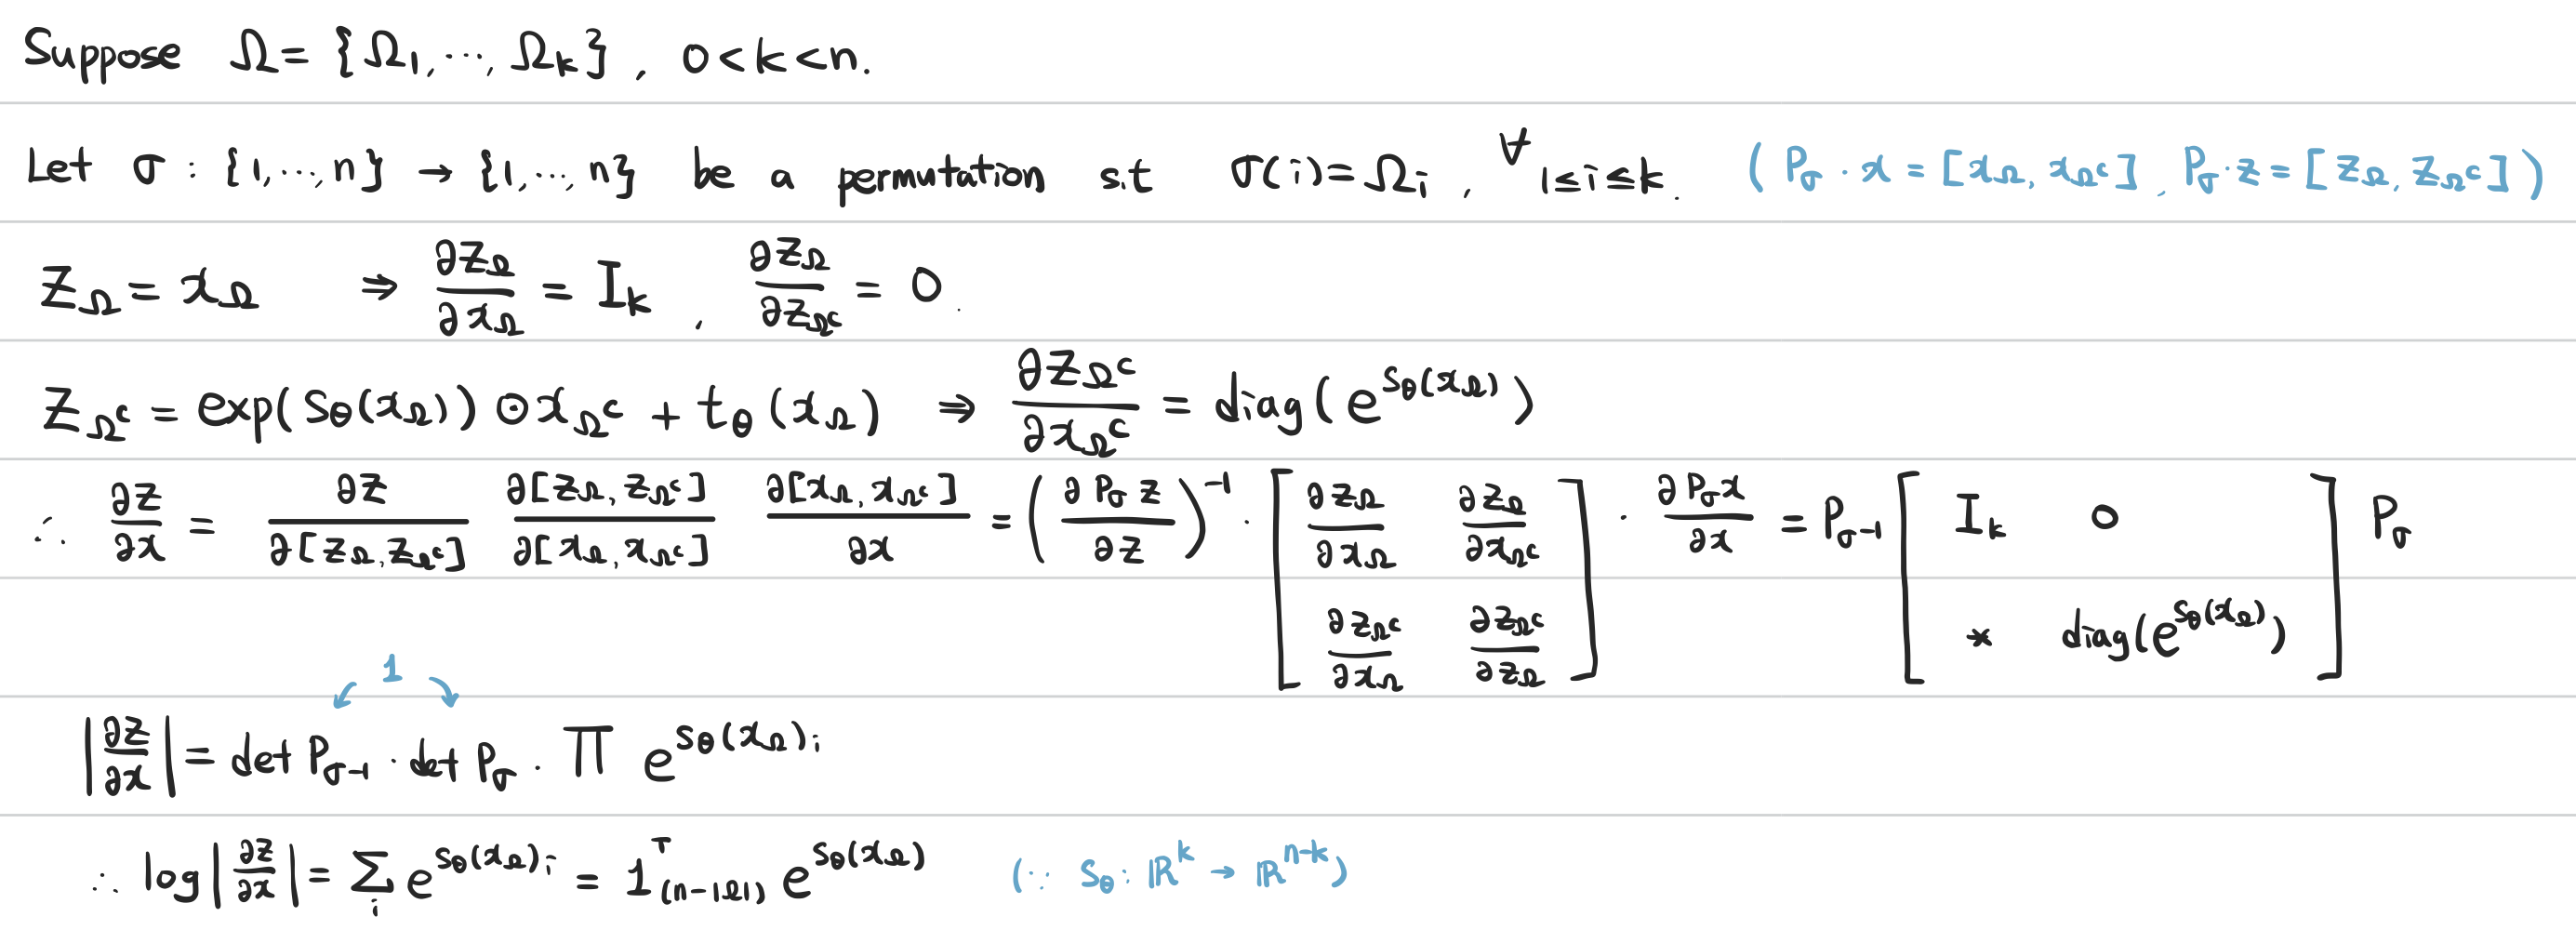 Suppose Ω = {Ω₁, ⋯, Ωₖ}, 0<k<n.
Let σ : {1, ⋯, n} → {1, ⋯, n} be a permutation s.t σ(i) = Ωᵢ, ∀ 1≤i≤k. ( P_σ · x = [x_Ω, x_{Ω^c}], P_σ · z = [z_Ω, z_{Ω^c}] )
z_Ω = x_Ω ⇒ ∂z_Ω/∂x_Ω = I_k, ∂z_Ω/∂z_{Ω^c} = 0.
z_{Ω^c} = exp(s_θ(x_Ω)) ⊙ x_{Ω^c} + t_θ(x_Ω) ⇒ ∂z_{Ω^c}/∂x_{Ω^c} = diag(e^{s_θ(x_Ω)})
∴ ∂z/∂x = ∂z/∂[z_Ω, z_{Ω^c}] ∂[z_Ω, z_{Ω^c}]/∂[x_Ω, x_{Ω^c}] ∂[x_Ω, x_{Ω^c}]/∂x = (∂P_σ z/∂z)^{-1} · [ ∂z_Ω/∂x_Ω ∂z_Ω/∂x_{Ω^c} ; ∂z_{Ω^c}/∂x_Ω ∂z_{Ω^c}/∂z_Ω ] · ∂P_σ x/∂x = P_{σ^{-1}} [ I_k 0 ; * diag(e^{s_θ(x_Ω)}) ] P_σ
1
|∂z/∂x| = det P_{σ^{-1}} · det P_σ · Π e^{s_θ(x_Ω)_i}
∴ log|∂z/∂x| = Σ_i e^{s_θ(x_Ω)_i} = 1^T_{(n-|Ω|)} e^{s_θ(x_Ω)} (∵ s_θ : ℝ^k → ℝ^{n-k})